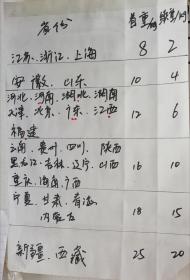 省份 首重/kg 续重/kg
江苏、浙江、上海 8 2
安徽、山东 10 4
河北、河南、湖北、湖南
天津、北京、广东、江西 12 6
福建
云南、贵州、四川、陕西
黑龙江、吉林、辽宁、山西 16 10
重庆、海南、广西
宁夏、甘肃、青海、
内蒙古 18 15
新疆、西藏 25 20